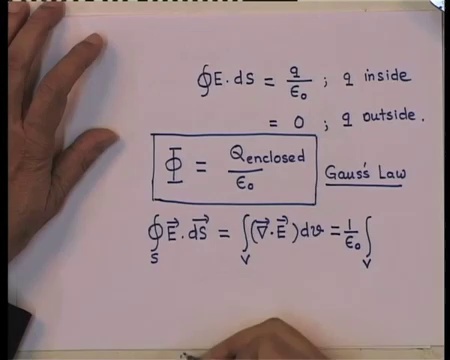 ∮E.ds = q/ε₀ ; q inside
= 0 ; q outside.
Φ = Qenclosed/ε₀ Gauss's Law
∮_S E⃗.dS⃗ = ∫_V (∇⃗.E⃗)dv = 1/ε₀ ∫_V